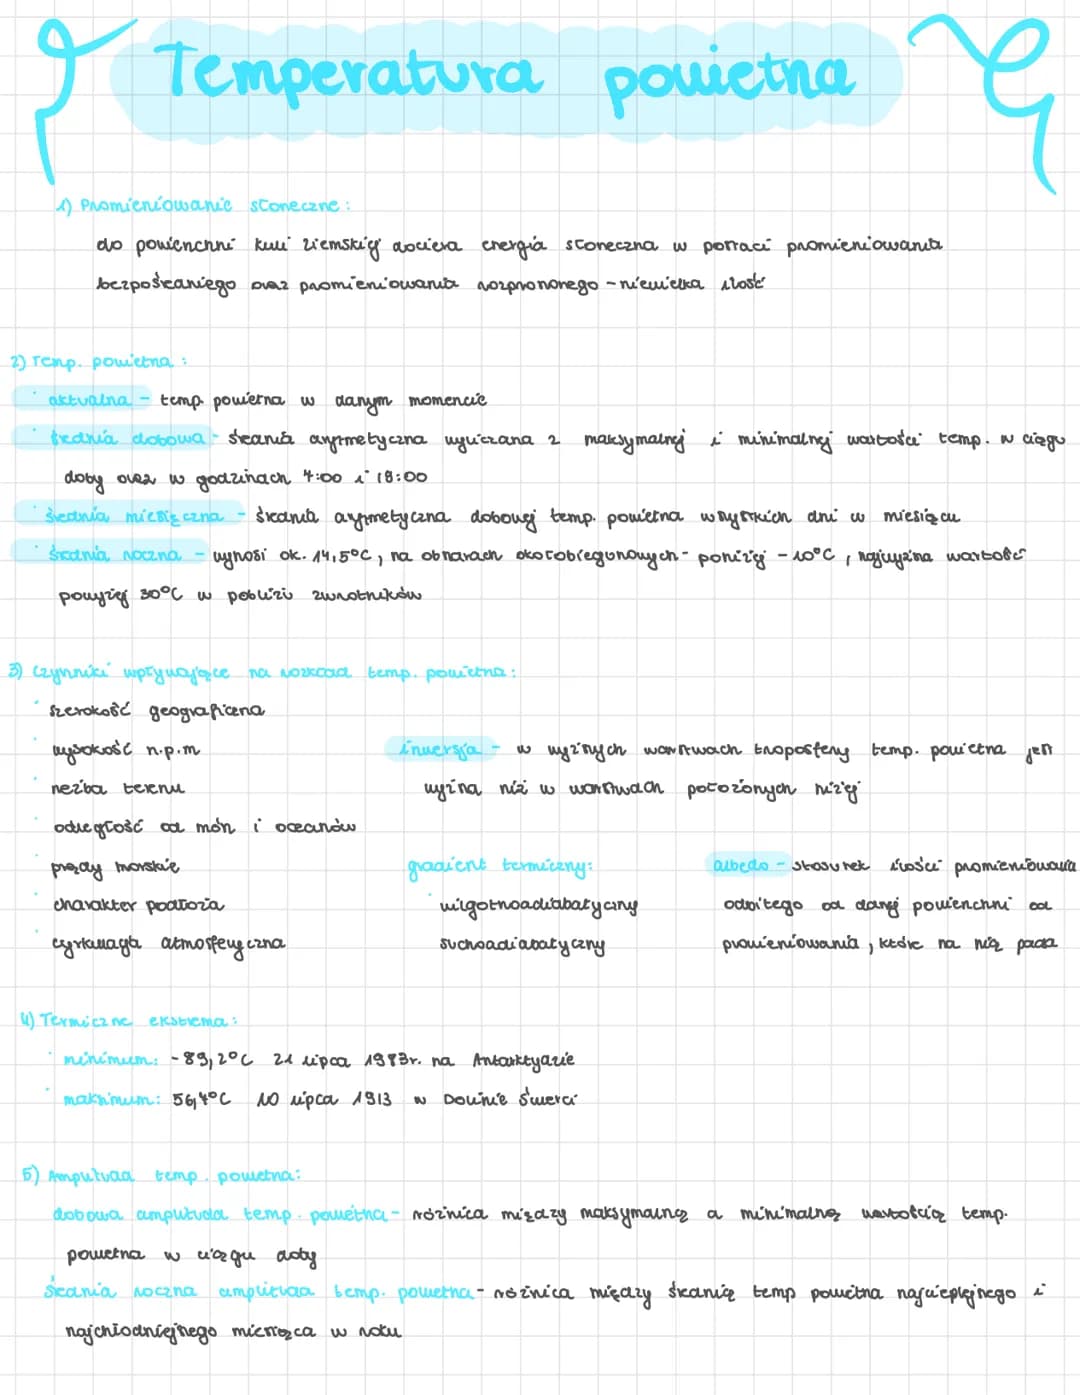 Temperatura powietrza
1) Promieniowanie słoneczne:
do powierzchni kuli ziemskiej dociera energia słoneczna w postaci promieniowania
bezpośredniego oraz promieniowania rozproszonego - niewielka ilość
2) Temp. powietrza:
· aktualna - temp. powietrza w danym momencie
· średnia dobowa - średnia arytmetyczna wyliczana z maksymalnej i minimalnej wartości temp. w ciągu
doby oraz w godzinach 7:00 i 18:00
· średnia miesięczna - średnia arytmetyczna dobowej temp. powietrza wszystkich dni w miesiącu
· średnia roczna - wynosi ok. 14,5°C, na obszarach okołobiegunowych - poniżej -10°C, najwyższa wartość
powyżej 30°C w pobliżu zwrotników
3) Czynniki wpływające na rozkład temp. powietrza:
· szerokość geograficzna
· wysokość n.p.m
inwersja - w wyższych warstwach troposfery temp. powietrza jest
· rzeźba terenu
wyższa niż w warstwach położonych niżej
· odległość od mórz i oceanów
· prądy morskie
gradient termiczny:
albedo - stosunek ilości promieniowania
· charakter podłoża
wilgotnoadiabatyczny
odbitego od danej powierzchni od
· cyrkulacja atmosferyczna
suchoadiabatyczny
promieniowania, które na nią pada
4) Termiczne ekstrema:
· minimum: -89,2°C 21 lipca 1983r. na Antarktydzie
· maksimum: 56,7°C 10 lipca 1913 w Dolinie Śmierci
5) Amplituda temp. powietrza:
dobowa amplituda temp. powietrza - różnica między maksymalną a minimalną wartością temp.
powietrza w ciągu doby
średnia roczna amplituda temp. powietrza - różnica między średnią temp powietrza najcieplejszego i
najchłodniejszego miesiąca w roku